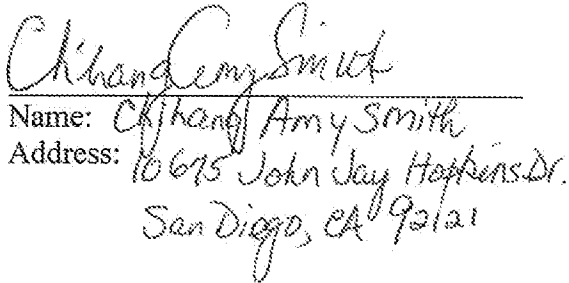 Chihang Amy Smith
Name: Chihang Amy Smith
Address: 10675 John Jay Hopkins Dr.
San Diego, CA 92121